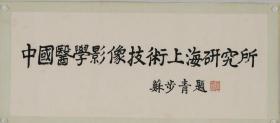 中國醫學影像技術上海研究所
蘇步青題